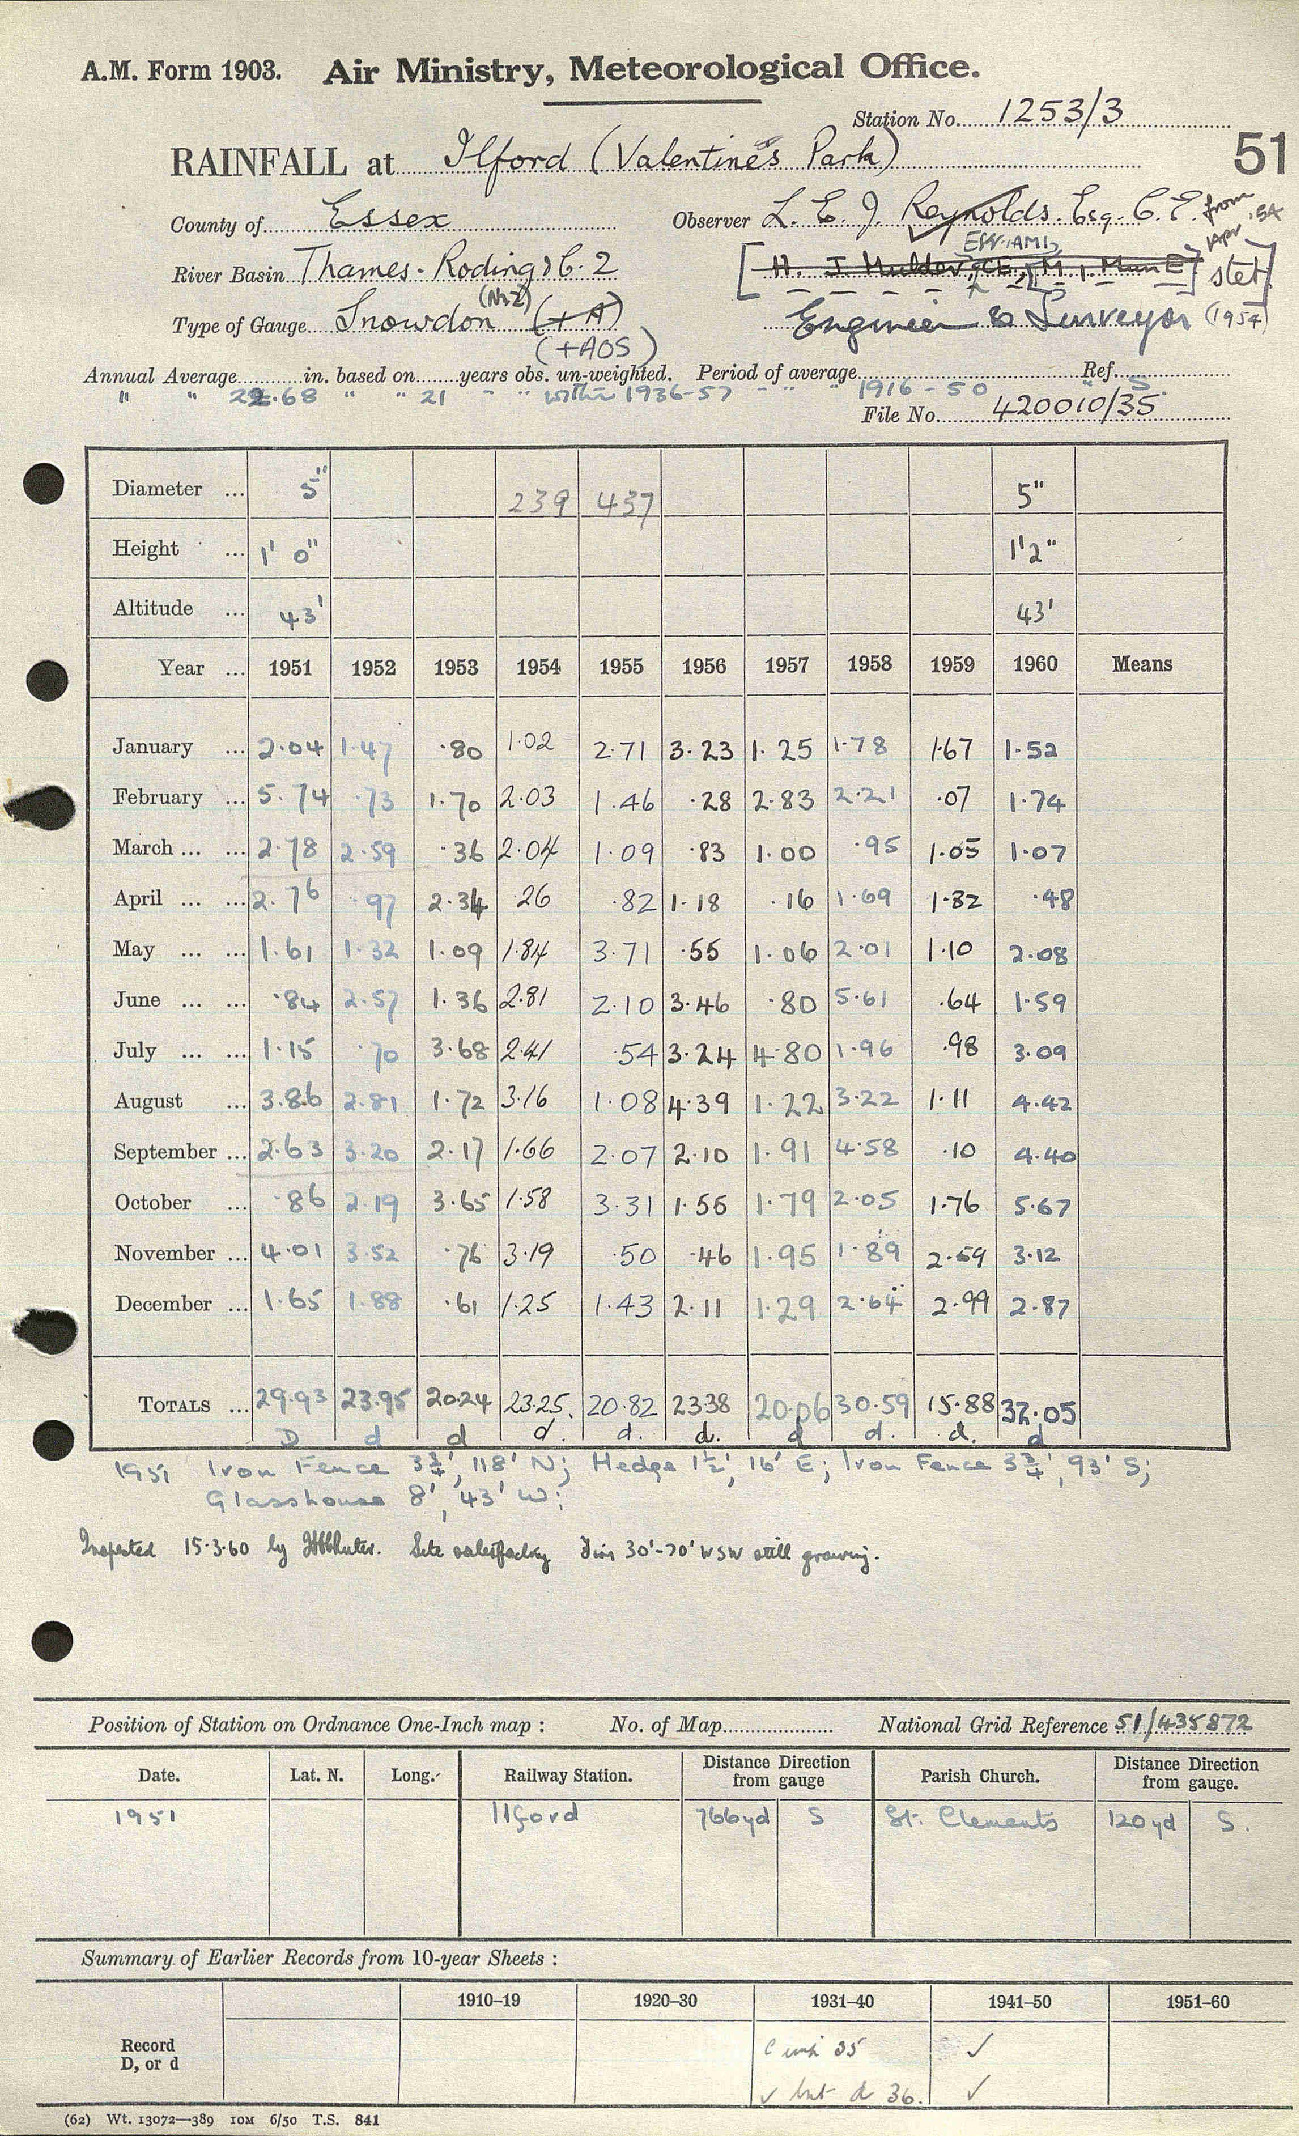 A.M. Form 1903. Air Ministry, Meteorological Office.
Station No. 1253/3
51
RAINFALL at Ilford (Valentine's Park)
County of Essex Observer L. E. J. Reynolds. Esq. C.E. from Apr '54
River Basin Thames - Roding & C. 2 stet
Type of Gauge Snowdon (Mk2) (+A) Engineer & Surveyor (1954)
(+AOS)
Annual Average in. based on years obs. un-weighted. Period of average Ref.
" " 22.68 " " 21 " " within 1936-57 " " 1916-50 " S.
File No. 420010/35
Diameter ... 5" 239 437 5"
Height ... 1' 0" 1'2"
Altitude ... 43' 43'
Year ... 1951 1952 1953 1954 1955 1956 1957 1958 1959 1960 Means
January ... 2.04 1.47 .80 1.02 2.71 3.23 1.25 1.78 1.67 1.52
February ... 5.74 .73 1.70 2.03 1.46 .28 2.83 2.21 .07 1.74
March ... ... 2.78 2.59 .36 2.04 1.09 .83 1.00 .95 1.05 1.07
April ... ... 2.76 .97 2.34 .26 .82 1.18 .16 1.69 1.82 .48
May ... ... 1.61 1.32 1.09 1.84 3.71 .55 1.06 2.01 1.10 2.08
June ... ... .84 2.57 1.36 2.81 2.10 3.46 .80 5.61 .64 1.59
July ... ... 1.15 .70 3.68 2.41 .54 3.24 4.80 1.96 .98 3.09
August ... 3.86 2.81 1.72 3.16 1.08 4.39 1.22 3.22 1.11 4.42
September ... 2.63 3.20 2.17 1.66 2.07 2.10 1.91 4.58 .10 4.40
October ... .86 2.19 3.65 1.58 3.31 1.55 1.79 2.05 1.76 5.67
November ... 4.01 3.52 .76 3.19 .50 .46 1.95 1.89 2.59 3.12
December ... 1.65 1.88 .61 1.25 1.43 2.11 1.29 2.64 2.99 2.87
TOTALS ... 29.93 23.95 20.24 23.25. 20.82 23.38 20.06 30.59 15.88 32.05
D d d d. d. d. d d. d. d
1951 Iron Fence 3¾', 118' N; Hedge 1½', 16' E; Iron Fence 3¾', 93' S;
Glasshouse 8', 43' W;
Inspected 15.3.60 by Site satisfactory 30'-70' WSW still growing.
Position of Station on Ordnance One-Inch map : No. of Map National Grid Reference 51/435872
Date. Lat. N. Long. Railway Station. Distance Direction from gauge Parish Church. Distance Direction from gauge.
1951 Ilford 766yd S St. Clements 120yd S.
Summary of Earlier Records from 10-year Sheets :
1910–19 1920–30 1931–40 1941–50 1951–60
Record D, or d 35 ✓
✓ but d 36. ✓
(62) Wt. 13072—389 10M 6/50 T.S. 841